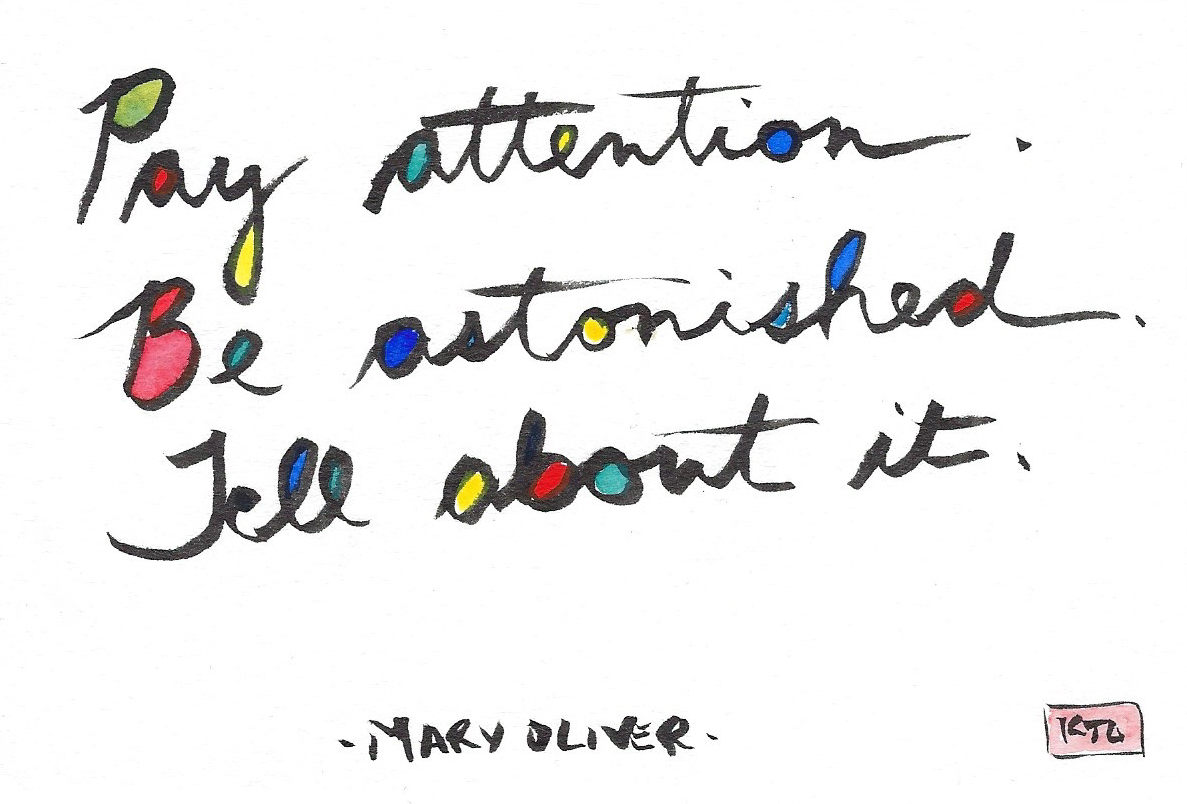 Pay attention.
Be astonished.
Tell about it.
- MARY OLIVER -
KTL